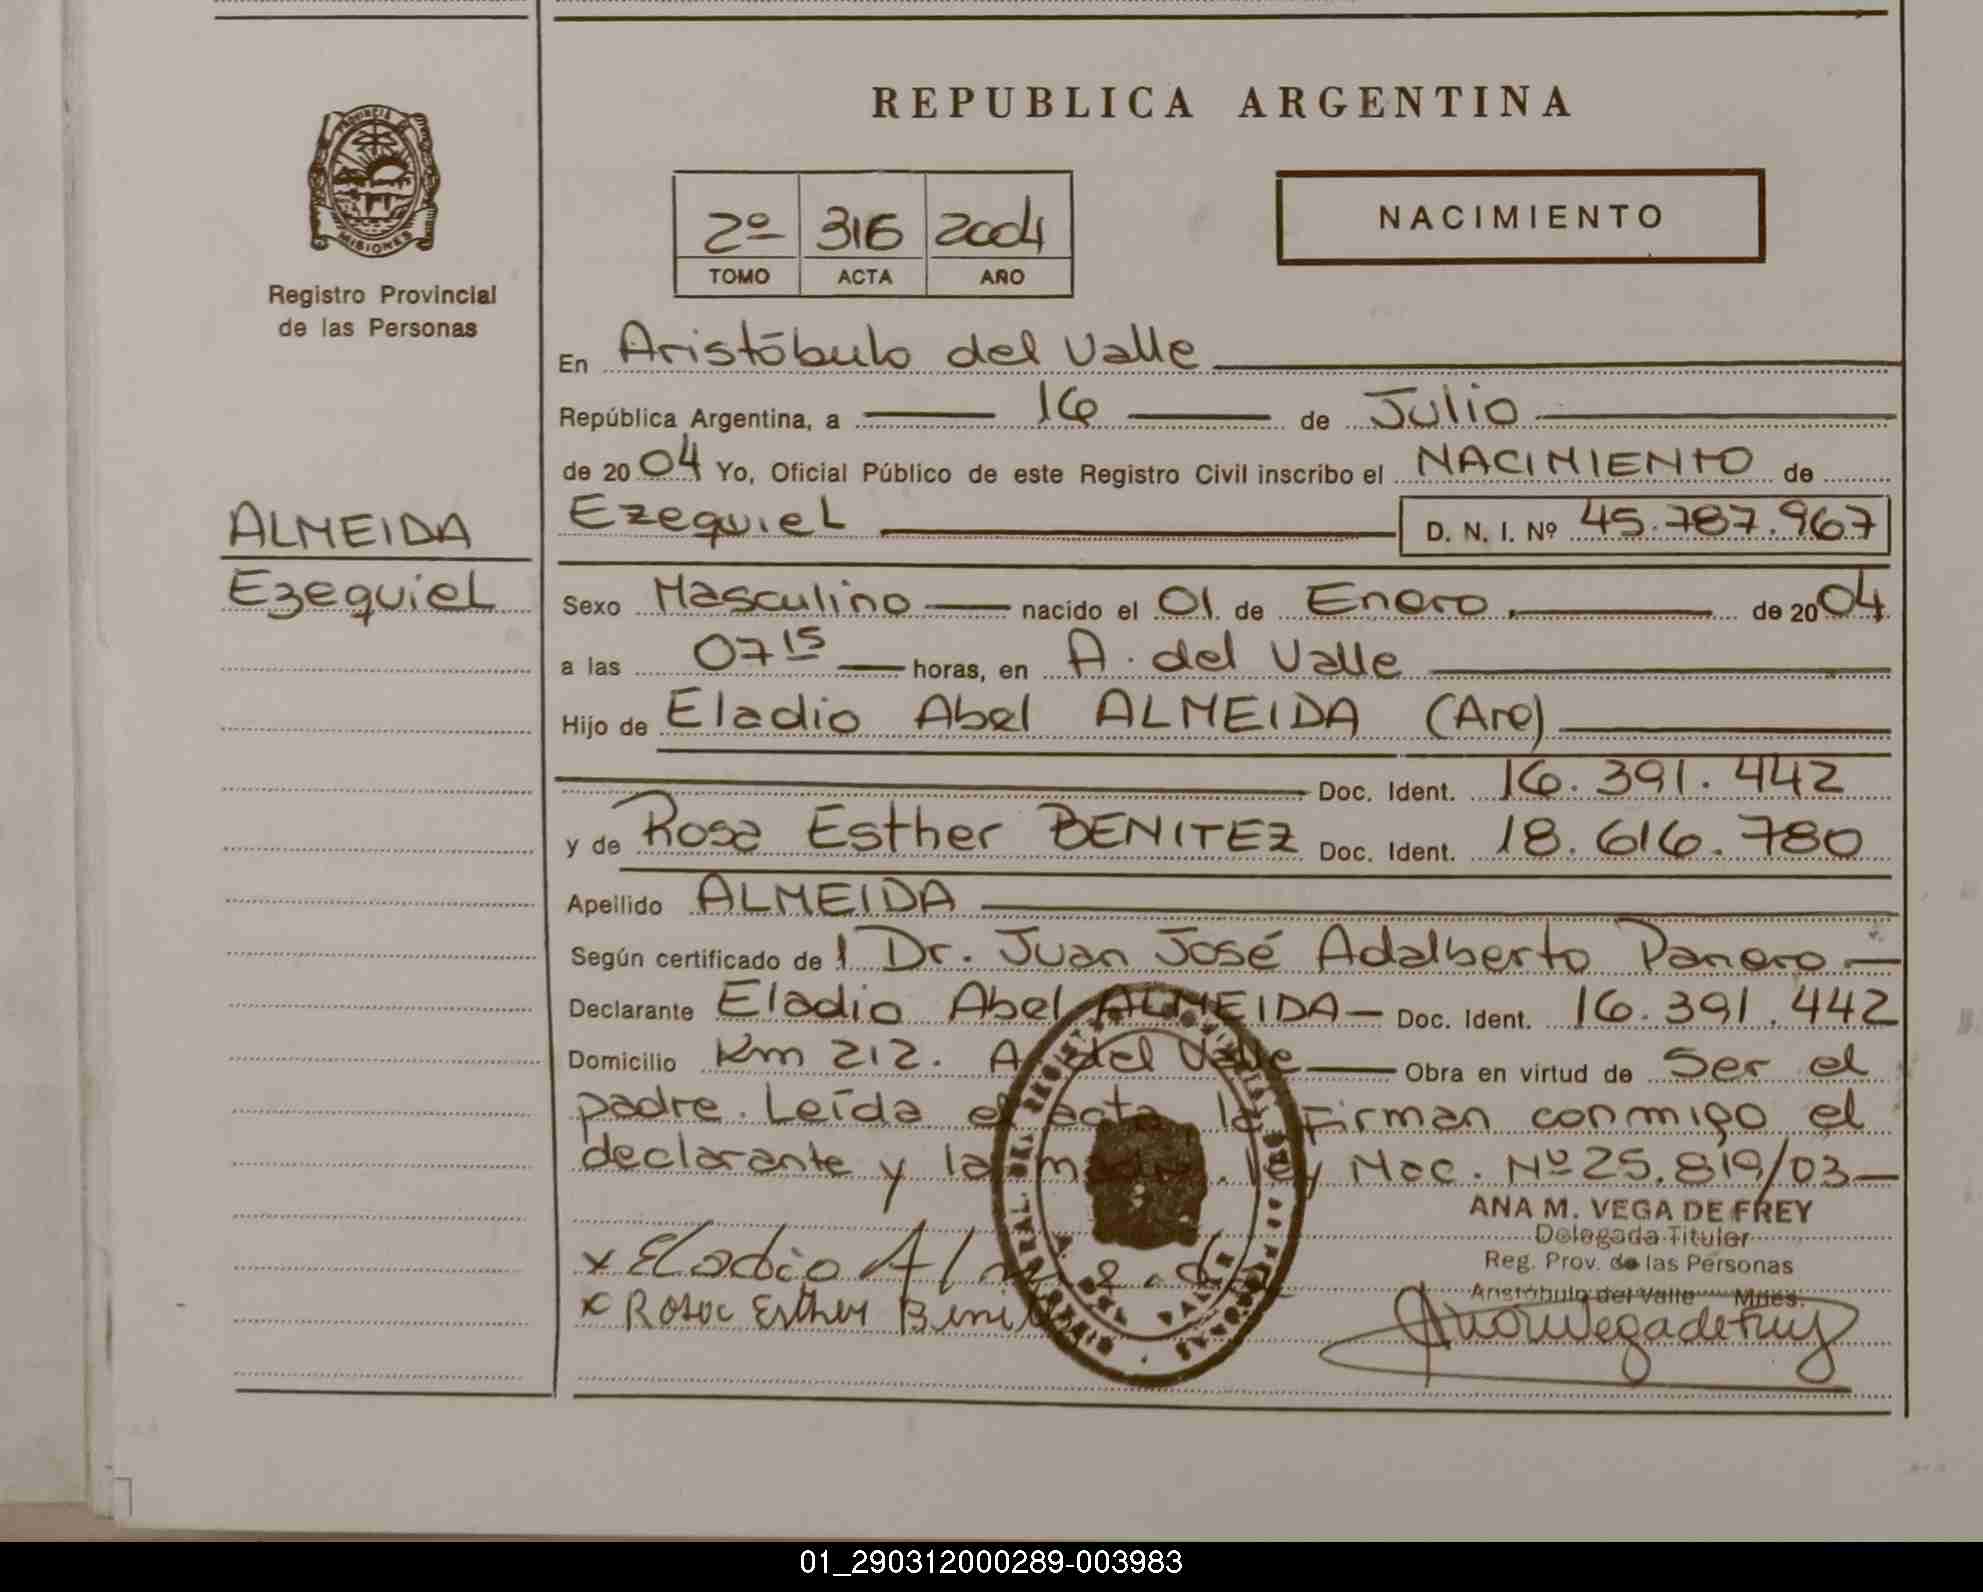 REPUBLICA ARGENTINA
PROVINCIA DE
MISIONES
Registro Provincial
de las Personas
2º 316 2004
TOMO ACTA AÑO
NACIMIENTO
En Aristóbulo del Valle
República Argentina, a 16 de Julio
de 2004 Yo, Oficial Público de este Registro Civil inscribo el NACIMIENTO de
ALMEIDA
Ezequiel
Ezequiel D. N. I. Nº 45.787.967
Sexo Masculino nacido el 01 de Enero de 2004
a las 07 15 horas, en A. del Valle
Hijo de Eladio Abel ALMEIDA (Arg)
Doc. Ident. 16.391.442
y de Rosa Esther BENITEZ Doc. Ident. 18.616.780
Apellido ALMEIDA
Según certificado del Dr. Juan José Adalberto Panero
Declarante Eladio Abel ALMEIDA Doc. Ident. 16.391.442
Domicilio Km 212. A. del Valle Obra en virtud de Ser el
padre. Leída el acta, la firman conmigo el
declarante y la madre. Ley Nac. Nº 25.819/03
ANA M. VEGA DE FREY
Delegada Titular
Reg. Prov. de las Personas
Aristóbulo del Valle Mnes.
x Eladio
x Rosa Esther
01_290312000289-003983